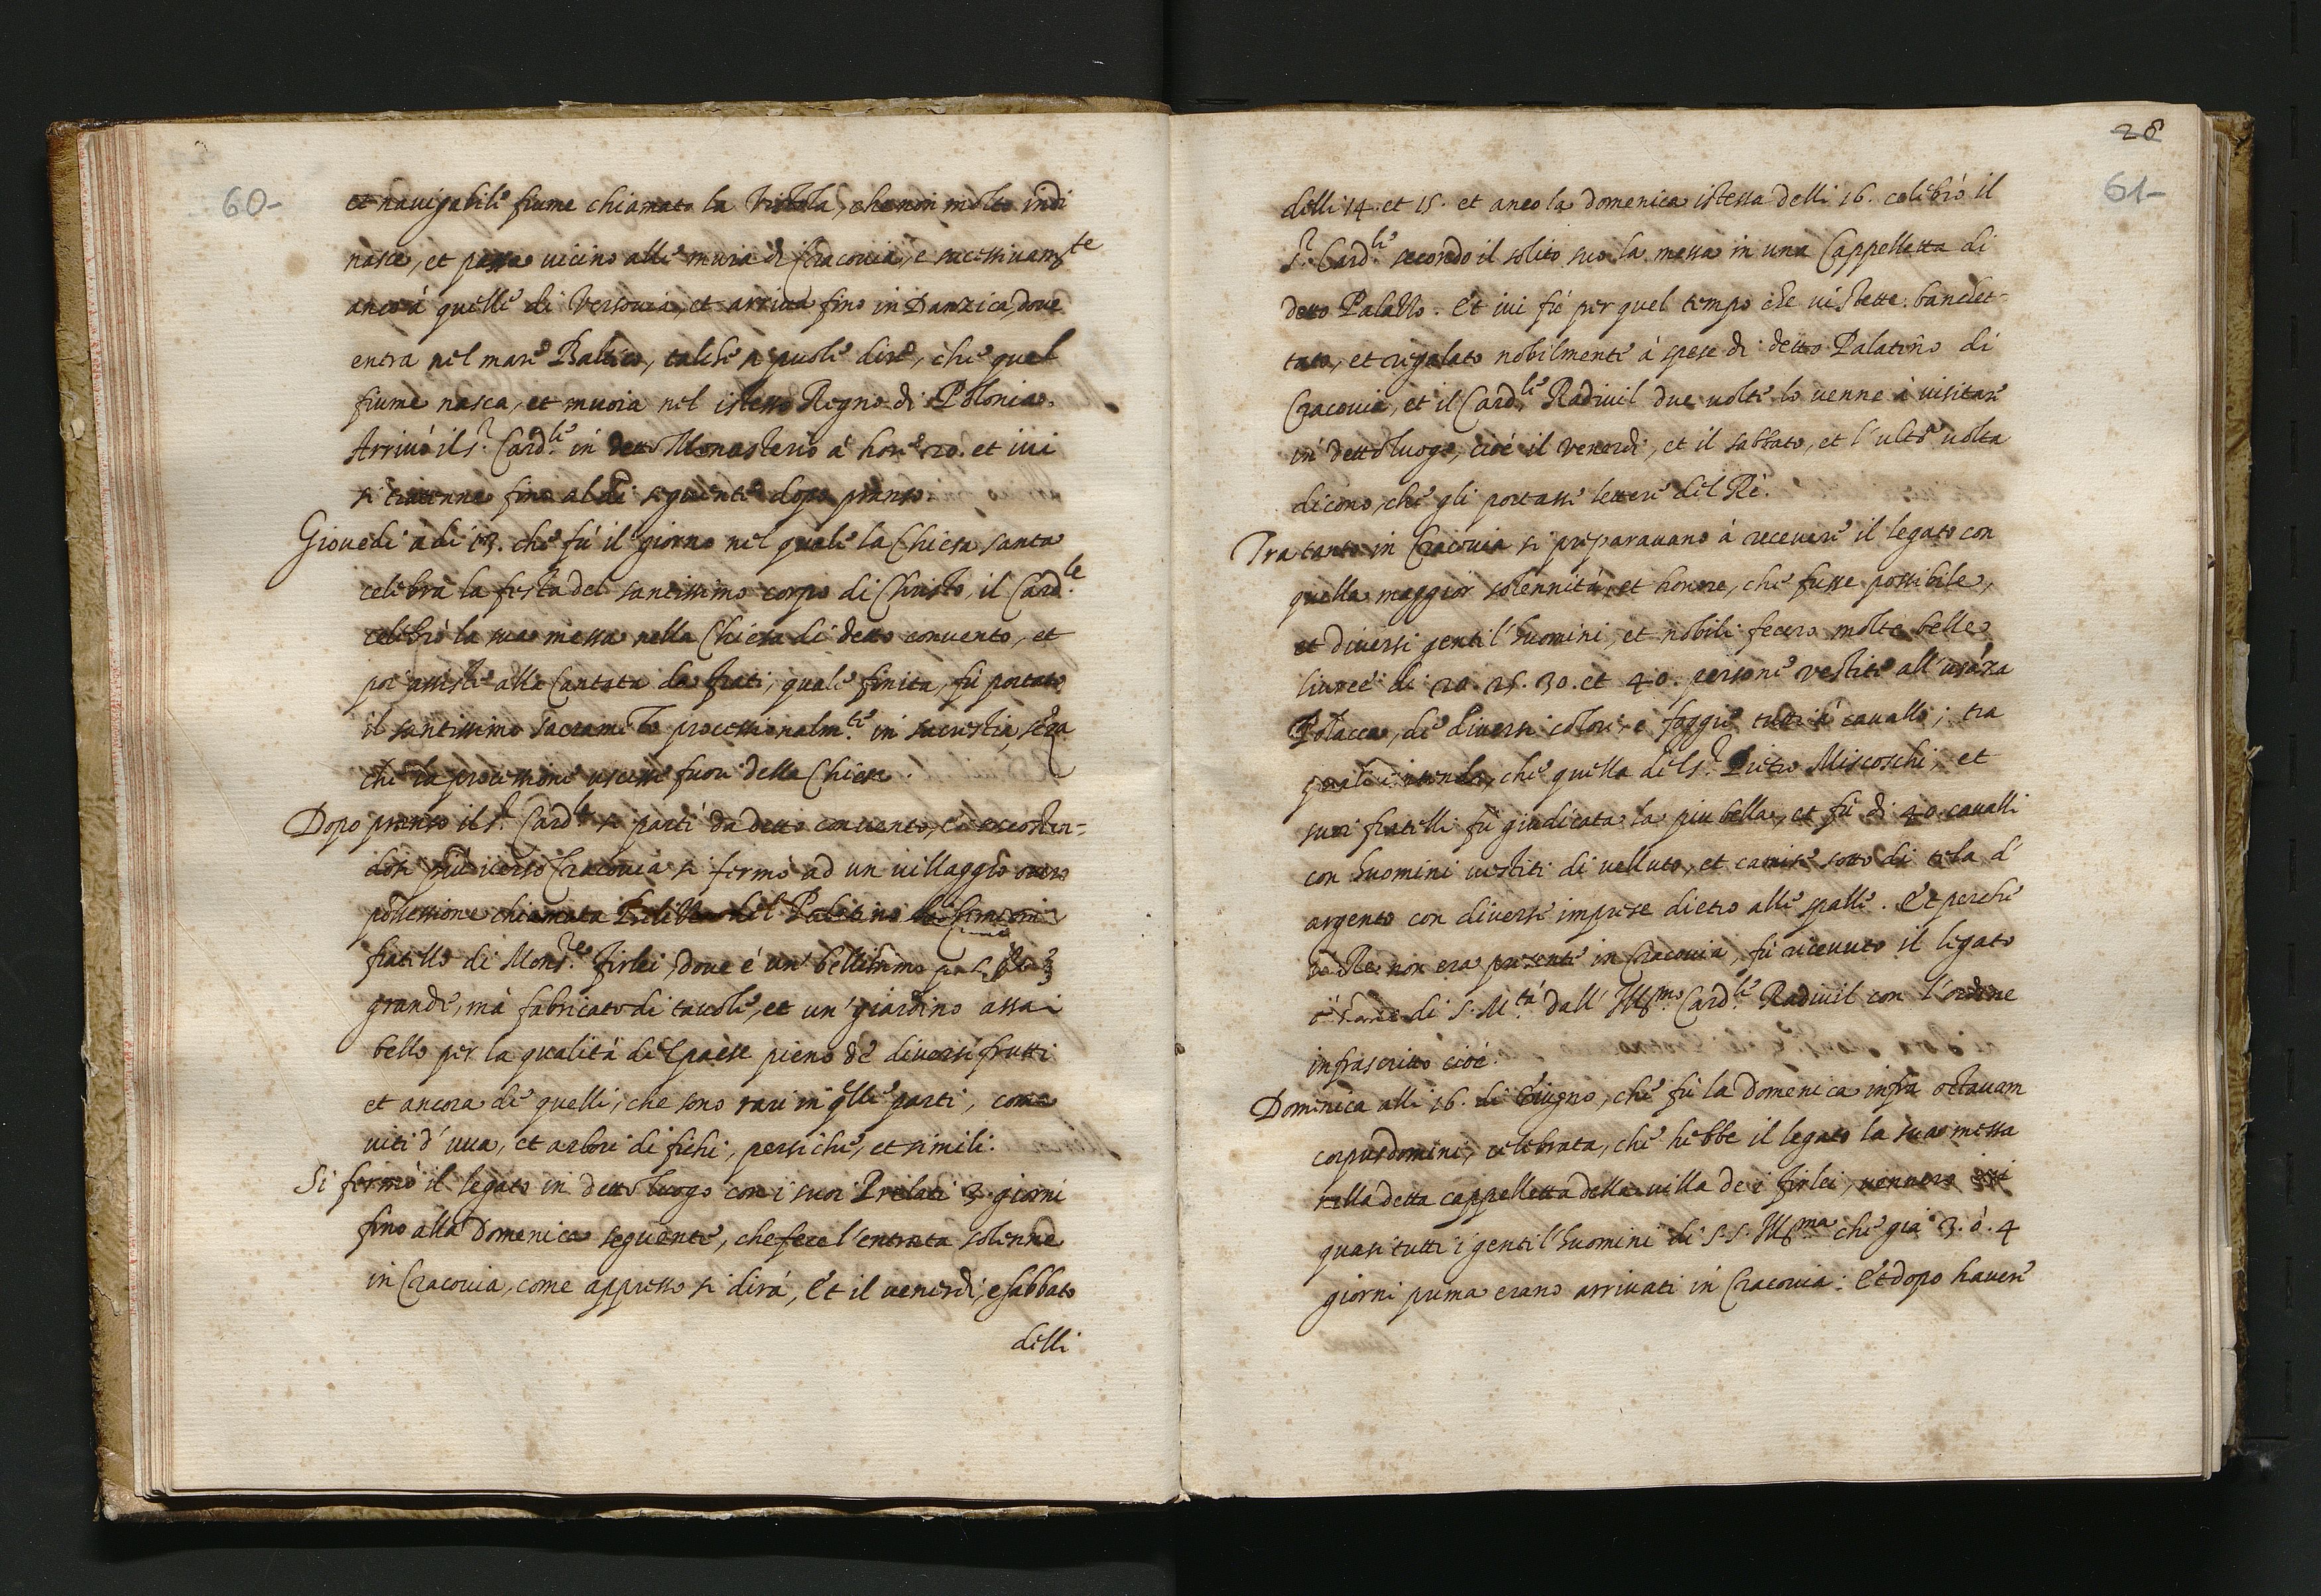 60-
et navigabile fiume chiamato la Vistola, che non molto indi
nasce, et passa vicino alle mura di Cracovia, e successivam.te
anco à quelle di Versovia, et arriva fino in Danzica, dove
entra nel mare Baltico, talche si puole dire, che quel
fiume nasca, et muoia nel istesso Regno di Polonia.
Arrivò il S.r Card.le in detto Monasterio à hore 20. et ivi
si trattenne fino al di seguente dopo pranso.
Giovedi à di 13. che fù il giorno nel quale la Chiesa santa
celebra la festa del santissimo corpo di Christo, il Card.le
celebrò la sua messa nella Chiesa di detto convento, et
poi assistè alla Cantata da frati, quale finita, fù portato
il santissimo sacram.to processionalm.te in sacristia, sẽza
che la processione uscisse fuori della Chiesa.
Dopo pranso il S.r Card.le si parti da detto convento, e accostan-
dosi più verso Cracovia si fermò ad un villaggio overo
possessione chiamata del Palatino
fratello di Mons.re Firlei, dove è un' bellissimo
grande, mà fabricato di tavole, et un' giardino assai
bello per la qualità del paese pieno de diversi frutti
et ancora di quelli, che sono rari in q̃lle parti, come
viti d' uva, et arbori di fichi, persiche, et simili.
Si fermò il legato in detto luogo con i suoi Prelati 3. giorni
fino alla Domenica seguente, che fece l'entrata solenne
in Cracovia, come appresso si dirà, Et il venerdì, e sabbato
delli
28
61-
delli 14. et 15. et anco la domenica istessa delli 16. celebrò il
S.r Card.le secondo il solito suo la messa in una Cappelletta di
detto Palazzo. Et ivi fù per quel tempo che vi stette banchet-
tato, et regalato nobilmente à spese di detto Palatino di
Cracovia, et il Card.le Radivil due volte lo venne à visitare
in detto luogo, cioè il venerdi, et il sabbato, et l'ultã volta
dicono, che gli portasse lettere del Rè.
Tra tanto in Cracovia si preparavano à ricevere il legato con
quella maggior solennità, et honore, che fusse possibile,
et diversi gentil'huomini, et nobili fecero molte belle
livree di 20. 25. 30. et 40. persone vestite all' usãza
Polacca, de diversi colori, e foggie tutti à cavallo; tra
quali intendo, che quella del S.r Pietro Miscoschi, et
suoi fratelli fù giudicata la piu bella, et fù di 40. cavalli
con huomini vestiti di velluto, et camise sotto di tela d'
argento con diverse imprese dietro alle spalle. Et perche
il Re non era presente in Cracovia, fù ricevuto il legato
à nome di S. M.tà dall' Ill.mo Card.le Radivil con l'ordine
infrascritto cioè.
Domenica alli 16. di Giugno, che fù la Domenica infra octavam
corpus domini, celebrata, che hebbe il legato la sua messa
nella detta cappelletta della villa dei Firlei, vennero ivi
quasi tutti i gentil'huomini di S. S. Ill.ma che già 3. ò. 4
giorni prima erano arrivati in Cracovia: Et dopo havere